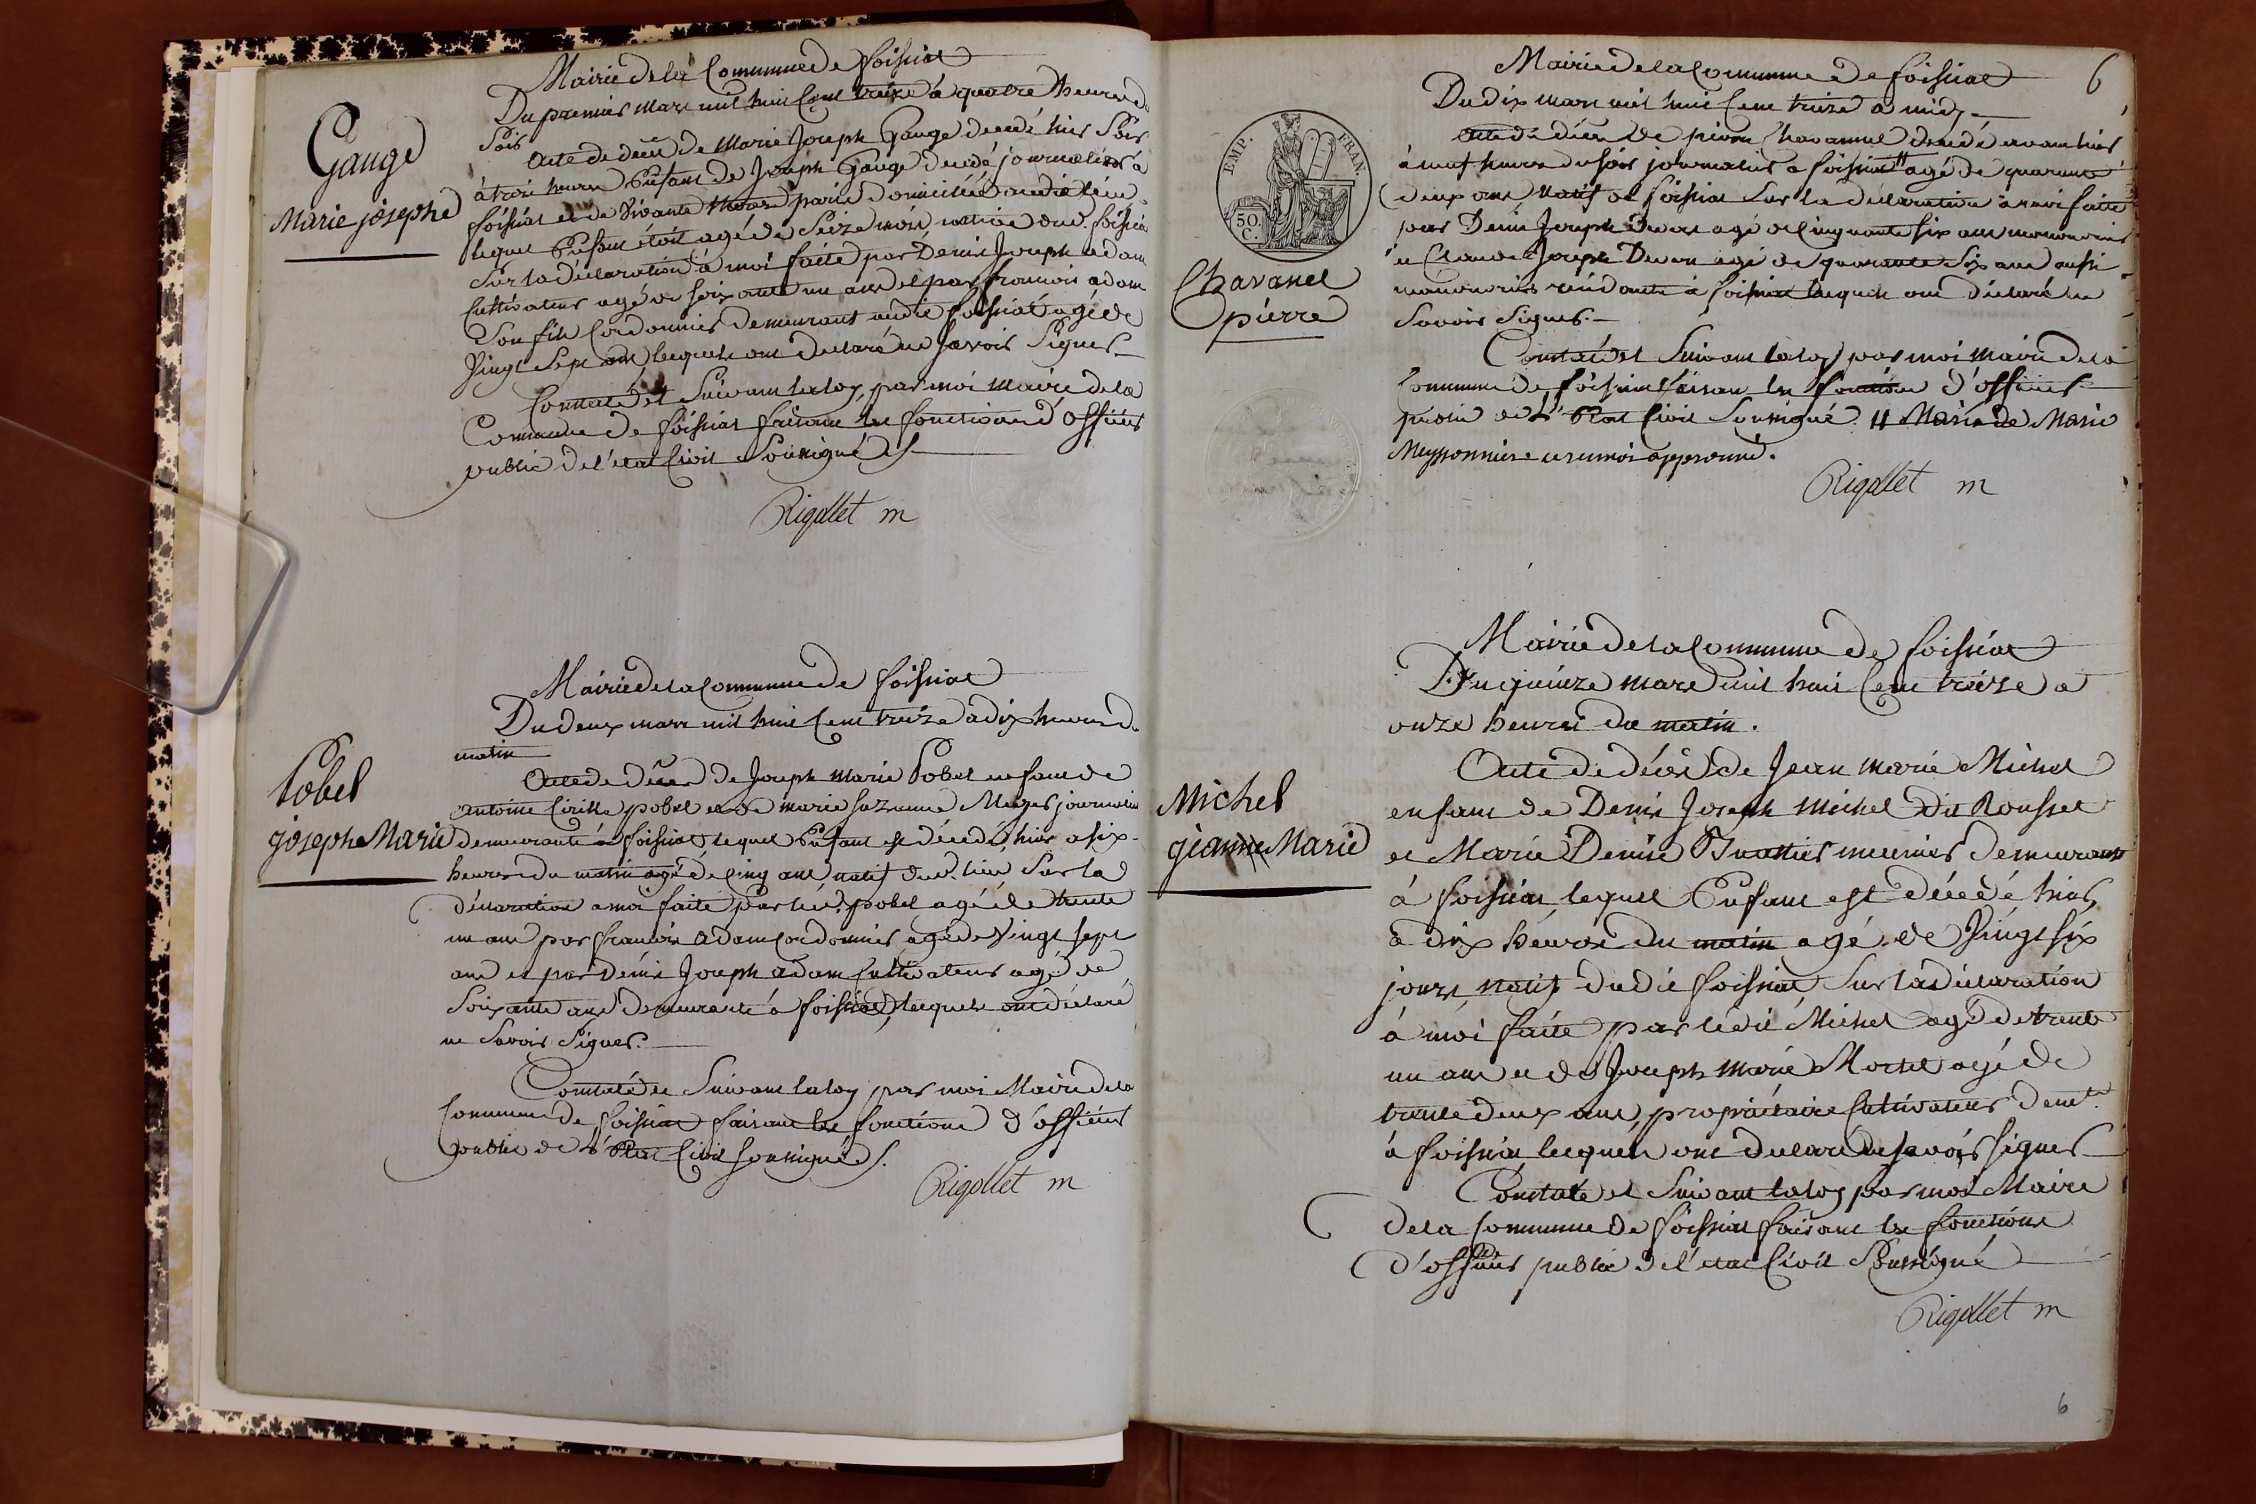 Mairie de la Commune de foissiat
Du premier mars mil huit Cent treize à quatre heures du
Soir
Gauge
Marie josephe
Acte de décès de Marie Joseph Gauge decedé hier Soir
à trois heures Enfant de Joseph Gauge decedé journalier à
foissiat et de Vivante paris domiciliée audit lieu
lequel Enfant étoit agé de Seize mois, native dud. foissiat
Sur la déclaration à moi faite par Denis Joseph adam
Cultivateur agé de soixante un ans et par francois adam
Son fils Cordonnier demeurant audit foissiat agé de
Vingt Sept ans, lesquels ont declaré ne Savoir Signer
Constaté et Suivant la loy, par moi Maire de la
Commune de foissiat faisant les fonctions d'officier
public de l'etat Civil Soussigné
Rigollet m
Mairie de la Commune de foissiat
Du deux mars mil huit Cent treize à dix heures du
matin
Pobel
josephe Marie
Acte de décès de Joseph Marie Pobel enfant de
antoine pobel et de marie suzanne journalier
demeurants à foissiat, lequel Enfant est décédé hier a six
heures du matin agé de Cinq ans natif dud. lieu Sur la
déclaration a moi faite par led. pobel agé de trente
un ans par francois adam Cordonnier agé de Vingt sept
ans et par Denis Joseph adam Cultivateur agé de
Soixante ans demeurants à foissiat, lesquels ont déclaré
ne Savoir Signer.
Constaté et Suivant la loy par moi Maire de la
Commune de foissiat faisant les fonctions d'officier
public de L'Etat Civil soussigné
Rigollet m
6
Mairie de la Commune de foissiat
Du dix mars mil huit Cent treize à midy
EMP. FRAN.
50 C.
Chavanel
pierre
Acte de décès de pierre Chavannel decedé avant hier
à neuf heures du soir journalier a foissiat # agé de quarante
deux ans Natif de foissiat Sur la déclaration à moi faite
par Denis Joseph agé de Cinquante six ans manouvrier
et Claude Joseph agé de quarante Six ans aussi
manouvrier résidants à foissiat lesquels ont déclaré ne
Savoir Signer.
Constaté et Suivant la loy par moi Maire de la
Commune de foissiat faisant les fonctions d'officier
public de L'Etat Civil Soussigné. # Mari de Marie
Meyssonnier approuvé.
Rigollet m
Mairie de la Commune de foissiat
Du quinze mars mil huit Cent treize a
onze heures du matin.
Michel
jeanne Marie
Acte de décès de Jean Marie Michel
enfant de Denis Joseph Michel dit Rousset
et Marie Denise meunier demeurant
à foissiat, lequel Enfant est décédé hier
à dix heures du matin agé de Vingt six
jours, Natif dudit foissiat Sur la déclaration
à moi faite par ledit Michel agé de trente
un ans et de Joseph Marie Morel agé de
trente deux ans, propriétaire Cultivateur demt.
à foissiat lesquels ont declaré ne savoir signer
Constaté et Suivant la loy par moi Maire
de la Commune de foissiat faisant les fonctions
d'officier public de l'etat Civil Soussigné
Rigollet m
6